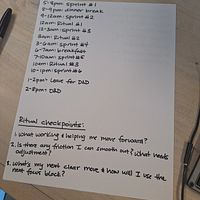 5-8pm: Sprint #1
8-9pm: dinner break
9-12am: Sprint #2
12am: Ritual #1
12-3am: Sprint #3
3am: Ritual #2
3-6am: Sprint #4
6-7am: breakfast
7-10am: Sprint #5
10am: Ritual #3
10-1pm: Sprint #6
1-2pm: Leave for D&D
2-8pm: D&D
Ritual checkpoints:
1. What's working & helping me move forward?
2. Is there any friction I can smooth out? What needs
adjustment?
3. What's my next clear move & how will I use the
next focus block?